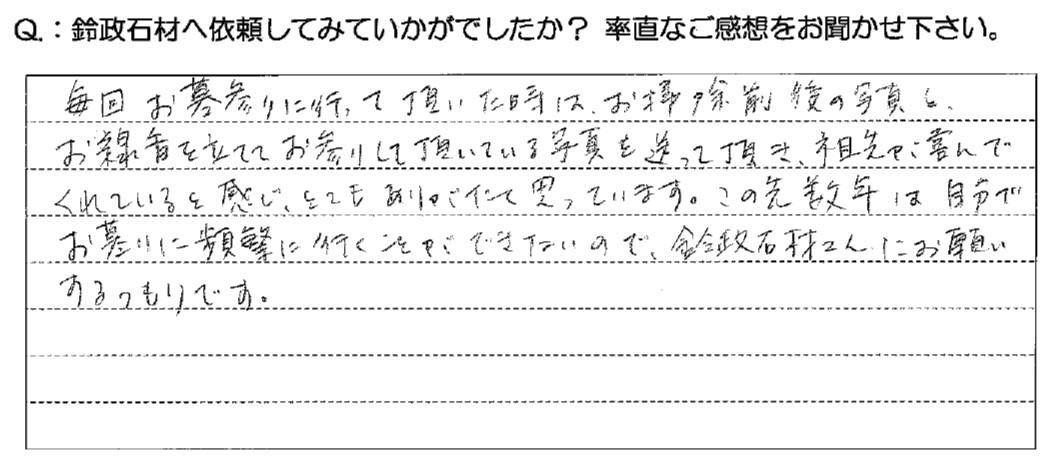 Q.：鈴政石材へ依頼してみていかがでしたか？ 率直なご感想をお聞かせ下さい。
毎回お墓参りに行って頂いた時は、お掃除前後の写真と、
お線香を立ててお参りして頂いている写真を送って頂き、祖先が喜んで
くれていると感じ、とてもありがたく思っています。この先数年は自分で
お墓りに頻繁に行くことができないので、鈴政石材さんにお願い
するつもりです。